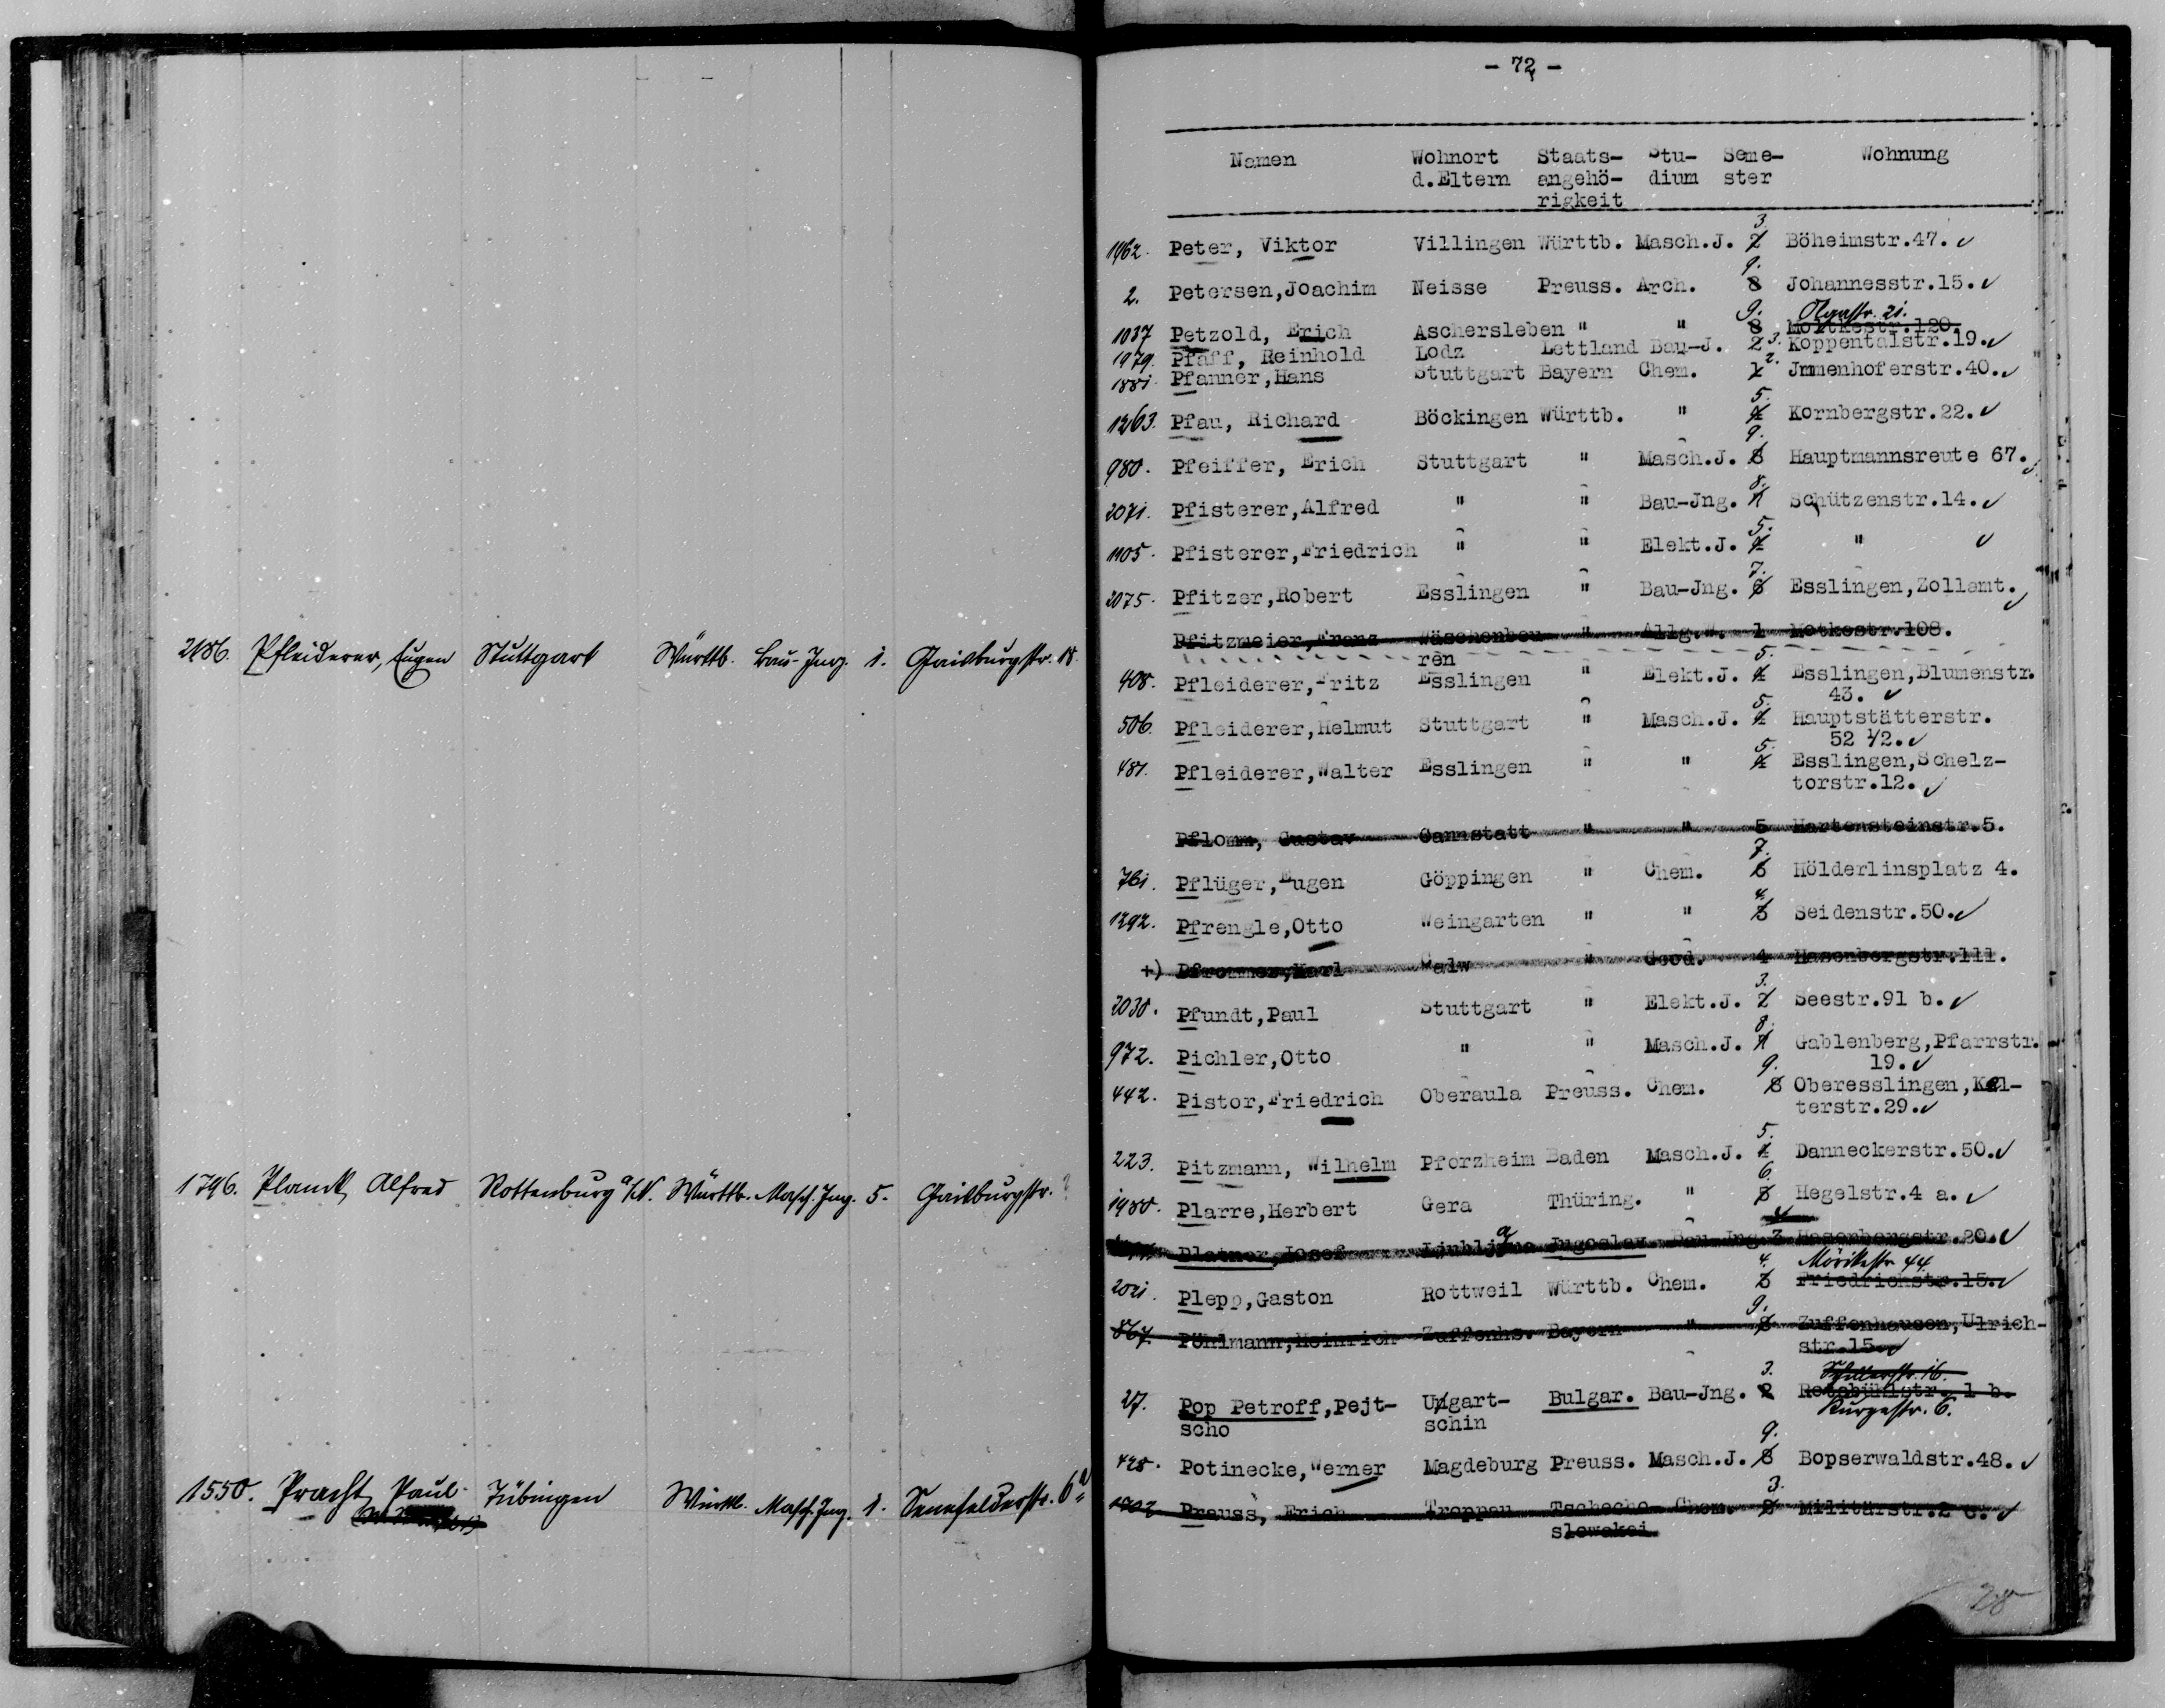 2186. Pfleiderer, Eugen Stuttgart Württb. Bau-Ing. 1. Gaisburgstr. 18.
1796. Planck, Alfred Rottenburg a/N. Württb. Masch. Ing. 5. Gaisburgstr. ?
1550. Pracht, Paul Tübingen Württb. Masch. Ing. 1. Senefelderstr. 6
- 72 -
Namen Wohnort Staats- Stu- Seme- Wohnung
d.Eltern angehö- dium ster
rigkeit
3.
1962. Peter, Viktor Villingen Württb. Masch.J. 2 Böheimstr.47. ✓
9.
2. Petersen,Joachim Neisse Preuss. Arch. 8 Johannesstr.15. ✓
9. Olgastr. 21.
1037 Petzold, Erich Aschersleben " " 8 Moltkestr.120.
1979. Pfaff, Reinhold Lodz Lettland Bau-J. 2 3. Koppentalstr.19. ✓
1881. Pfanner,Hans Stuttgart Bayern Chem. 1 2. Jmmenhoferstr.40. ✓
5.
1263. Pfau, Richard Böckingen Württb. " 4 Kornbergstr.22. ✓
9.
980. Pfeiffer, Erich Stuttgart " Masch.J. 8 Hauptmannsreute 67. ✓
8.
2071. Pfisterer,Alfred " " Bau-Jng. 7 Schützenstr.14. ✓
5.
1105. Pfisterer,Friedrich " " Elekt.J. 4 " ✓
7.
2075. Pfitzer,Robert Esslingen " Bau-Jng. 6 Esslingen,Zollamt. ✓
Pfitzmeier,Franz Wäschenbeu " Allg.W. 1 Motkestr.108.
ren 5.
408. Pfleiderer,Fritz Esslingen " Elekt.J. 4 Esslingen,Blumenstr.
43. ✓
5.
506. Pfleiderer,Helmut Stuttgart " Masch.J. 4 Hauptstätterstr.
52 1/2. ✓
5.
481. Pfleiderer,Walter Esslingen " " 4 Esslingen,Schelz-
torstr.12. ✓
Pflomm, Gustav Cannstatt " " 5 Hartensteinstr.5.
7.
761. Pflüger,Eugen Göppingen " Chem. 6 Hölderlinsplatz 4.
4.
1292. Pfrengle,Otto Weingarten " " 3 Seidenstr.50. ✓
+) Pfrommer,Karl Calw " Geod. 4 Hasenbergstr.111.
3.
2030. Pfundt,Paul Stuttgart " Elekt.J. 2 Seestr.91 b. ✓
8.
972. Pichler,Otto " " Masch.J. 7 Gablenberg,Pfarrstr.
19. ✓
9.
442. Pistor,Friedrich Oberaula Preuss. Chem. 8 Oberesslingen,Kel-
terstr.29. ✓
5.
223. Pitzmann, Wilhelm Pforzheim Baden Masch.J. 4 Danneckerstr.50. ✓
6.
1980. Plarre,Herbert Gera Thüring. " 5 Hegelstr.4 a. ✓
Platner,Josef Ljubljana Jugoslav. Bau-Jng. 3 Hasenbergstr.20. ✓
4. Mörikestr. 44
2021. Plepp,Gaston Rottweil Württb. Chem. 3 Friedrichstr.15. ✓
9.
867. Pöhlmann,Heinrich Zuffenhs. Bayern " 8 Zuffenhausen,Ulrich-
str.15 ✓
3. Schillerstr. 16.
27. Pop Petroff,Pejt- Ugart- Bulgar. Bau-Jng. 2 Rotebühlstr. 1 b.
scho schin Kurzestr. 6.
9.
428. Potinecke,Werner Magdeburg Preuss. Masch.J. 8 Bopserwaldstr.48. ✓
3.
Preuss, Erich Troppau Tschecho- Chem. 2 Militärstr.2 ✓
slowakei
28